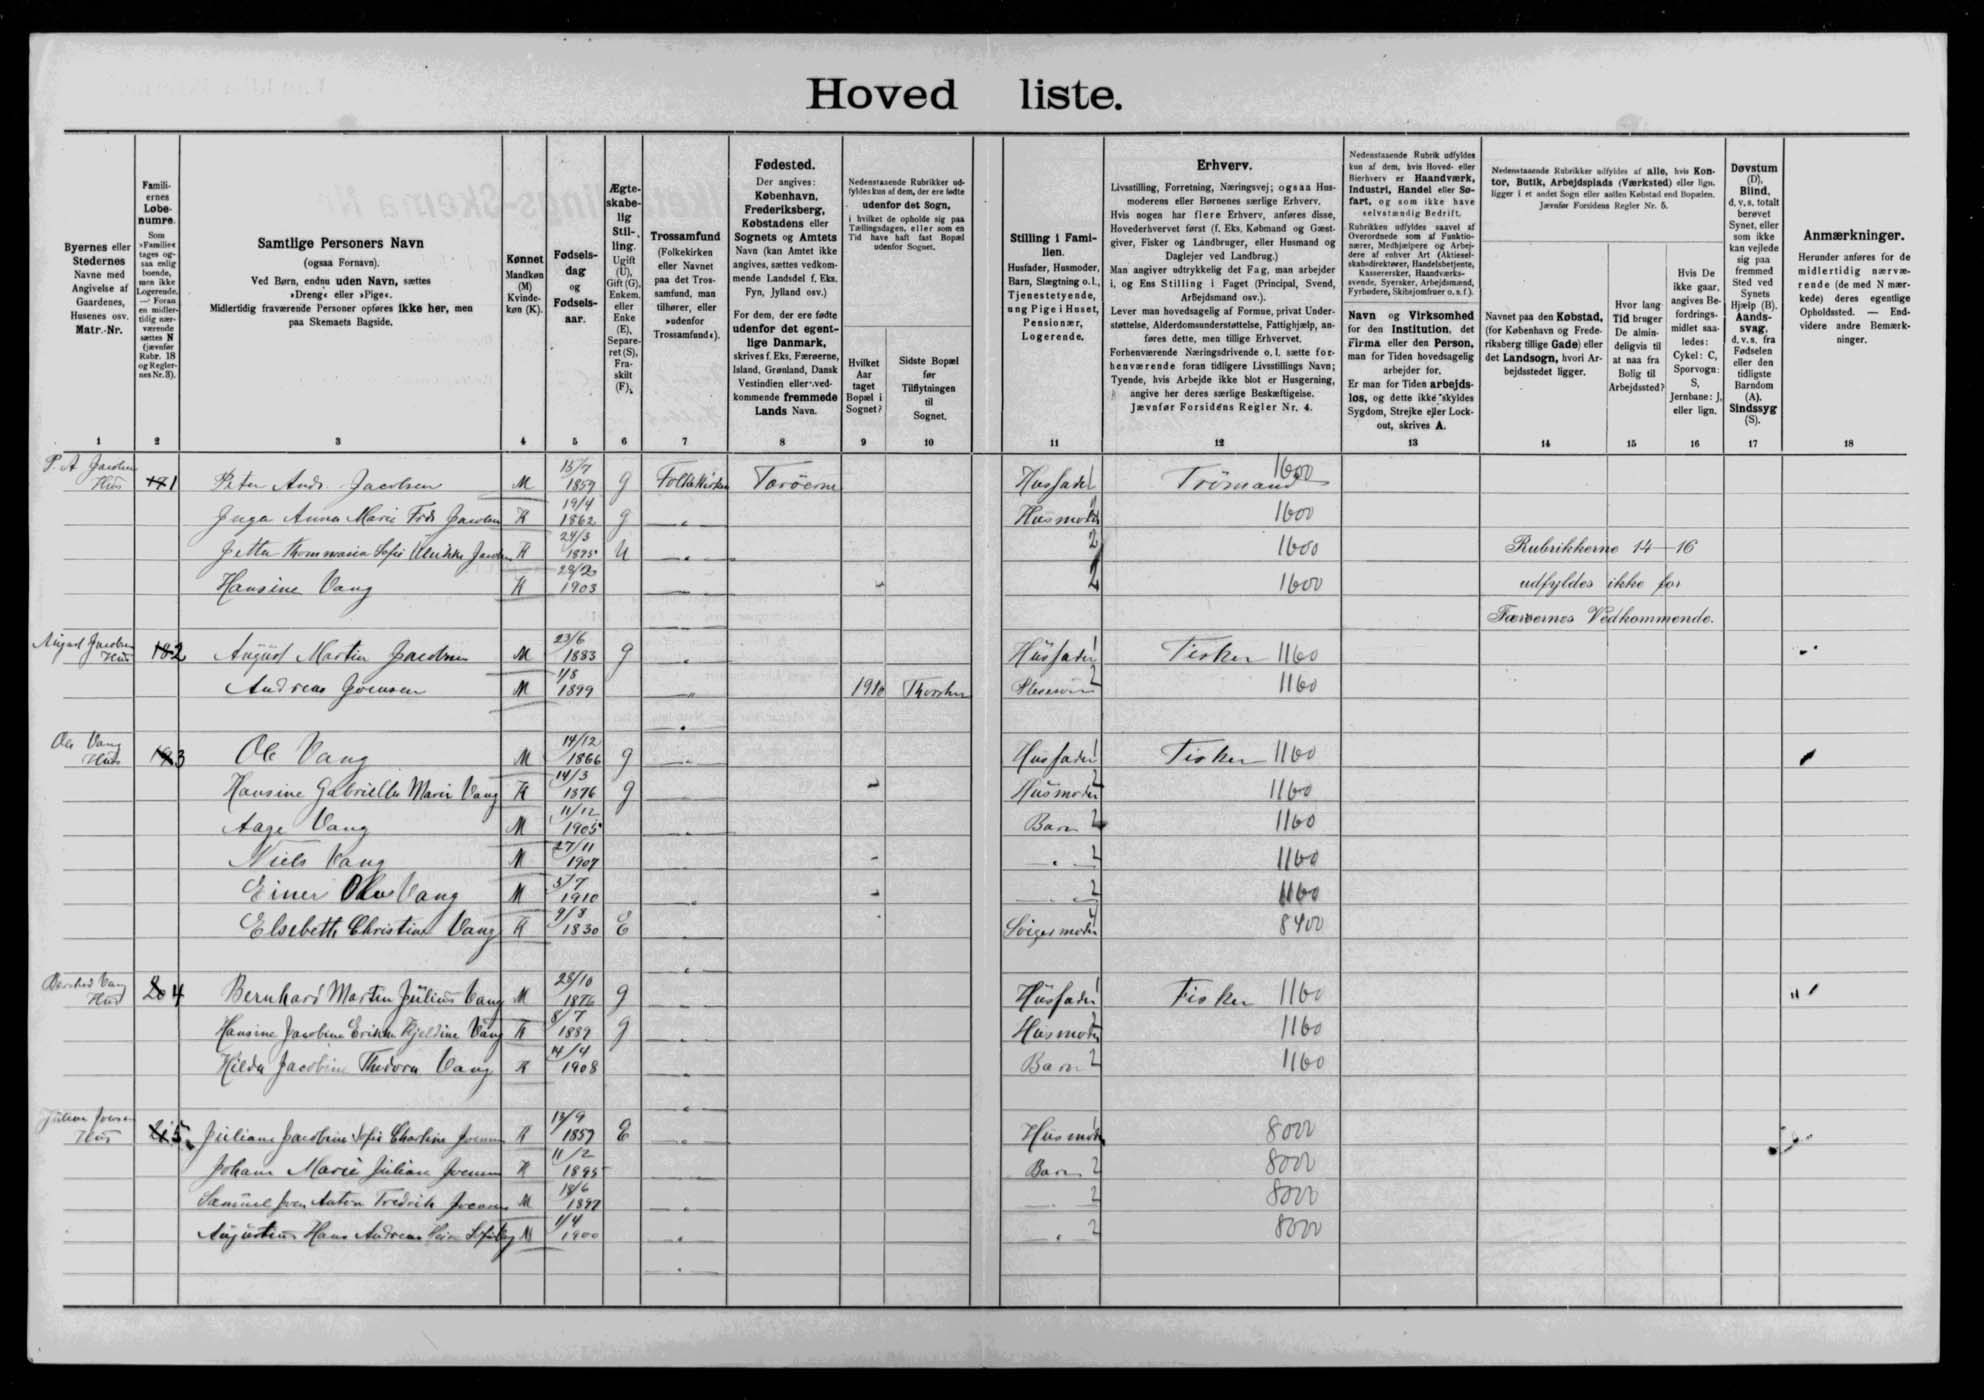 Hoved liste.
Byernes eller Stedernes Navne med Angivelse af Gaardenes, Husenes osv. Matr.-Nr.
Famili- ernes Løbe- numre. Som »Familie« tages og- saa enlig boende, men ikke Logerende. — Foran en midler- tidig nær- værende sættes N (jævnfør Rubr. 18 og Regler- nes Nr. 3).
Samtlige Personers Navn (ogsaa Fornavn). Ved Børn, endnu uden Navn, sættes »Dreng« eller »Pige«. Midlertidig fraværende Personer opføres ikke her, men paa Skemaets Bagside.
Kønnet Mandkøn (M) Kvinde- køn (K).
Fødsels- dag og Fødsels- aar.
Ægte- skabe- lig Stil- ling. Ugift (U), Gift (G), Enkem. eller Enke (E), Separe- ret (S), Fra- skilt (F).
Trossamfund (Folkekirken eller Navnet paa det Tros- samfund, man tilhører, eller »udenfor Trossamfund«).
Fødested. Der angives: København, Frederiksberg, Købstadens eller Sognets og Amtets Navn (kan Amtet ikke angives, sættes vedkom- mende Landsdel f. Eks. Fyn, Jylland osv.) For dem, der ere fødte udenfor det egent- lige Danmark, skrives f. Eks. Færøerne, Island, Grønland, Dansk Vestindien eller ved- kommende fremmede Lands Navn.
Nedenstaaende Rubrikker ud- fyldes kun af dem, der ere fødte udenfor det Sogn, i hvilket de opholde sig paa Tællingsdagen, eller som en Tid have haft fast Bopæl udenfor Sognet.
Hvilket Aar taget Bopæl i Sognet?
Sidste Bopæl før Tilflytningen til Sognet.
Stilling i Fami- lien. Husfader, Husmoder, Barn, Slægtning o. l., Tjenestetyende, ung Pige i Huset, Pensionær, Logerende.
Erhverv. Livsstilling, Forretning, Næringsvej; ogsaa Hus- moderens eller Børnenes særlige Erhverv. Hvis nogen har flere Erhverv, anføres disse, Hovederhvervet først (f. Eks. Købmand og Gæst- giver, Fisker og Landbruger, eller Husmand og Daglejer ved Landbrug.) Man angiver udtrykkelig det Fag, man arbejder i, og Ens Stilling i Faget (Principal, Svend, Arbejdsmand osv.). Lever man hovedsagelig af Formue, privat Under- støttelse, Alderdomsunderstøttelse, Fattighjælp, an- føres dette, men tillige Erhvervet. Forhenværende Næringsdrivende o. l. sætte for- henværende foran tidligere Livsstillings Navn; Tyende, hvis Arbejde ikke blot er Husgerning, angive her deres særlige Beskæftigelse. Jævnfør Forsidens Regler Nr. 4.
Nedenstaaende Rubrik udfyldes kun af dem, hvis Hoved- eller Bierhverv er Haandværk, Industri, Handel eller Sø- fart, og som ikke have selvstændig Bedrift. Rubrikken udfyldes saavel af Overordnede som af Funktio- nærer, Medhjælpere og Arbej- dere af enhver Art (Aktiesel- skabsdirektører, Handelsbetjente, Kasserersker, Haandværks- svende, Syersker, Arbejdsmænd, Fyrbødere, Skibsjomfruer o. s. f.). Navn og Virksomhed for den Institution, det Firma eller den Person, man for Tiden hovedsagelig arbejder for. Er man for Tiden arbejds- løs, og dette ikke skyldes Sygdom, Strejke eller Lock- out, skrives A.
Nedenstaaende Rubrikker udfyldes af alle, hvis Kon- tor, Butik, Arbejdsplads (Værksted) eller lign. ligger i et andet Sogn eller anden Købstad end Bopælen. Jævnfør Forsidens Regler Nr. 5.
Navnet paa den Købstad, (for København og Frede- riksberg tillige Gade) eller det Landsogn, hvori Ar- bejdsstedet ligger.
Hvor lang Tid bruger De almin- deligvis til at naa fra Bolig til Arbejdssted?
Hvis De ikke gaar, angives Be- fordrings- midlet saa- ledes: Cykel: C, Sporvogn: S, Jernbane: J, eller lign.
Døvstum (D), Blind, d. v. s. totalt berøvet Synet, eller som ikke kan vejlede sig paa fremmed Sted ved Synets Hjælp (B). Aands- svag, d. v. s. fra Fødselen eller den tidligste Barndom (A). Sindssyg (S).
Anmærkninger. Herunder anføres for de midlertidig nærvæ- rende (de med N mær- kede) deres egentlige Opholdssted. — End- videre andre Bemærk- ninger.
1 2 3 4 5 6 7 8 9 10 11 12 13 14 15 16 17 18
P. A Jacobsen Hus 1 Peter Andr. Jacobsen M 15/7 1859 g Folkekirken Færöerne Husfader 1 Trömand 1600
Inga Anna Marie Fred. Jacobsen K 19/4 1862 g " Husmoder 1600
Jetta Thommasia Sofie Ulrikke Jacobsen K 24/3 1895 U " 2 1600 Rubrikkerne 14—16
Hansine Vang K 28/2 1903 " 2 1600 udfyldes ikke for
Færøernes Vedkommende.
August Jacobsen Hus 2 August Martin Jacobsen M 23/6 1883 g " Husfader 1 Fisker 1160
Andreas Joensen M 1/8 1899 " 1910 Plesesøn 2 1160
Ole Vang Hus 3 Ole Vang M 14/12 1866 g " Husfader 1 Fisker 1160
Hansine Gabriella Marie Vang K 14/3 1876 g Husmoder 2 1160
Aage Vang M 11/12 1905 " Barn 2 1160
Niels Vang M 27/11 1907 " " 2 1160
Einer Olav Vang M 5/7 1910 " " 2 1160
Elsebeth Christine Vang K 9/8 1830 E Svigermoder 4 8400
Bernhard Vang Hus 4 Bernhard Martin Julius Vang M 28/10 1876 g " Husfader 1 Fisker 1160
Hansine Jacobine Erikka Kjeldine Vang K 8/7 1889 g " Husmoder 2 1160
Hilda Jacobine Thedora Vang K 14/4 1908 " Barn 2 1160
Juliane Joensen Hus 5 Juliane Jacobine Sofie Charline Joensen K 13/9 1859 E " Husmoder 1 8000
Johane Marie Juliane Joensen K 11/2 1895 " Barn 2 8000
Samuel Joen Anton Fredrik Joensen M 18/6 1897 " " 2 8000
Augustin Hans Andreas M 1/4 1900 " " 2 8000